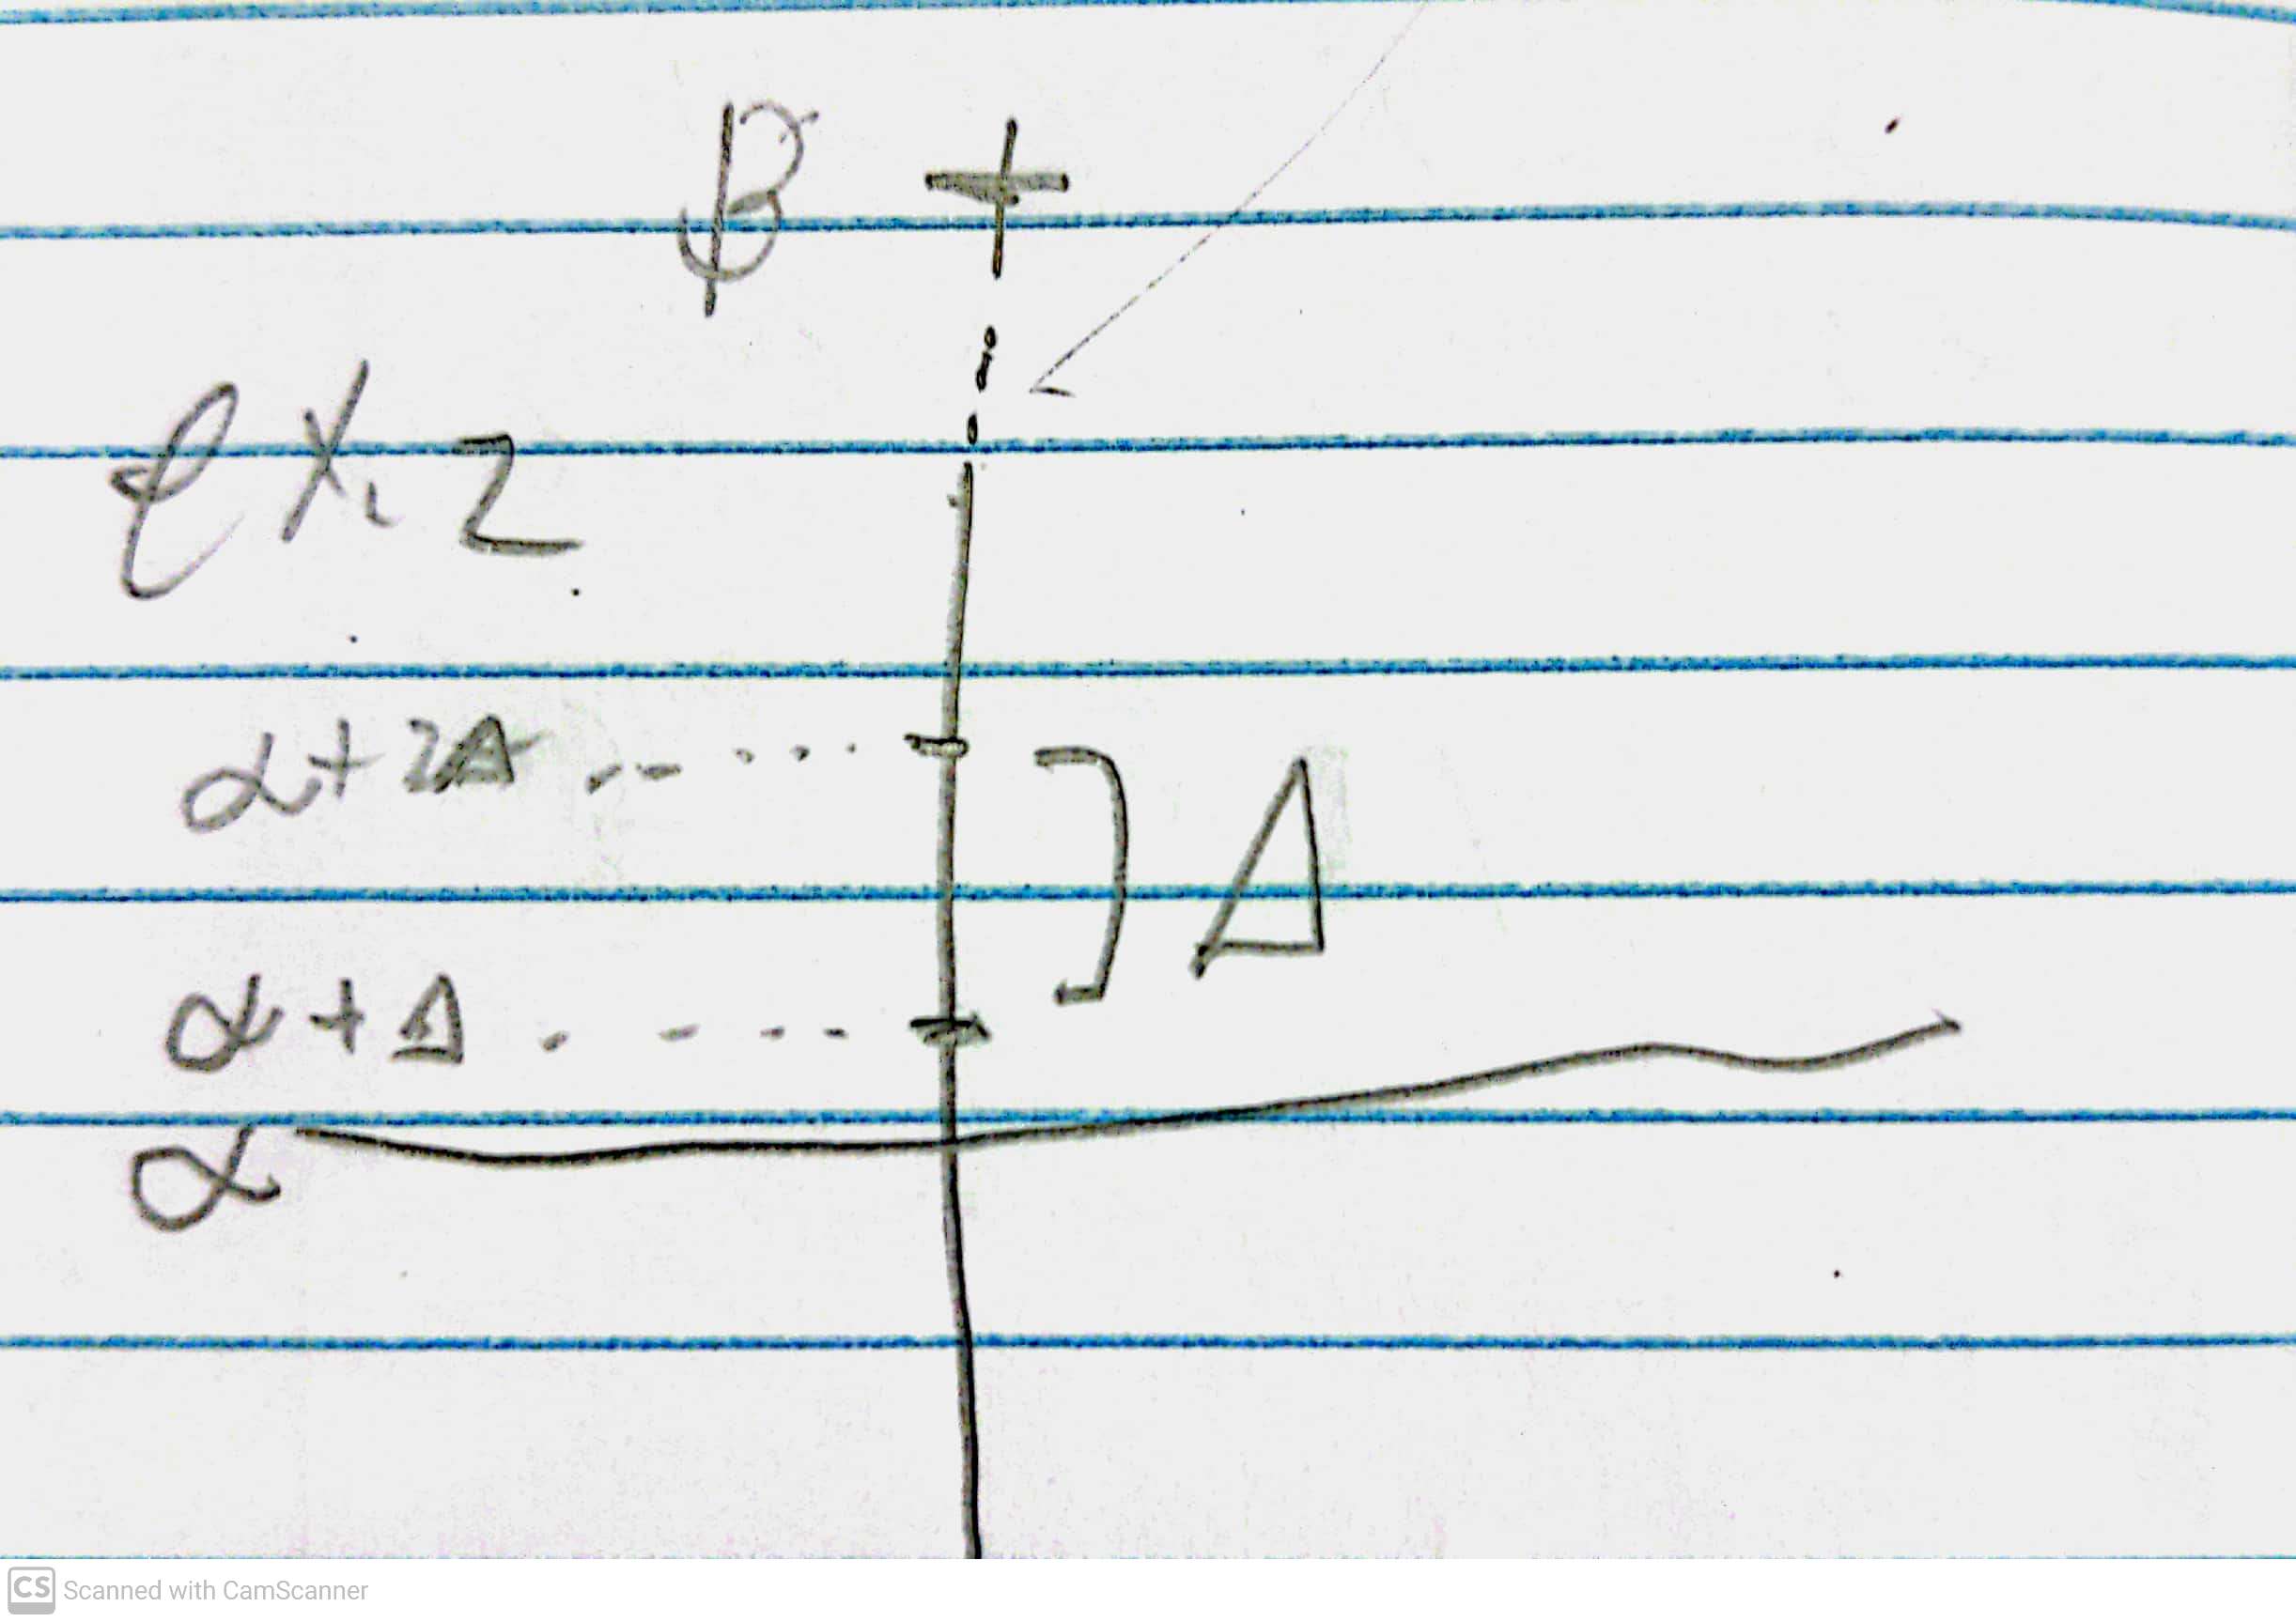 β
ex. 2
α + 2Δ
Δ
α + Δ
α
CS Scanned with CamScanner